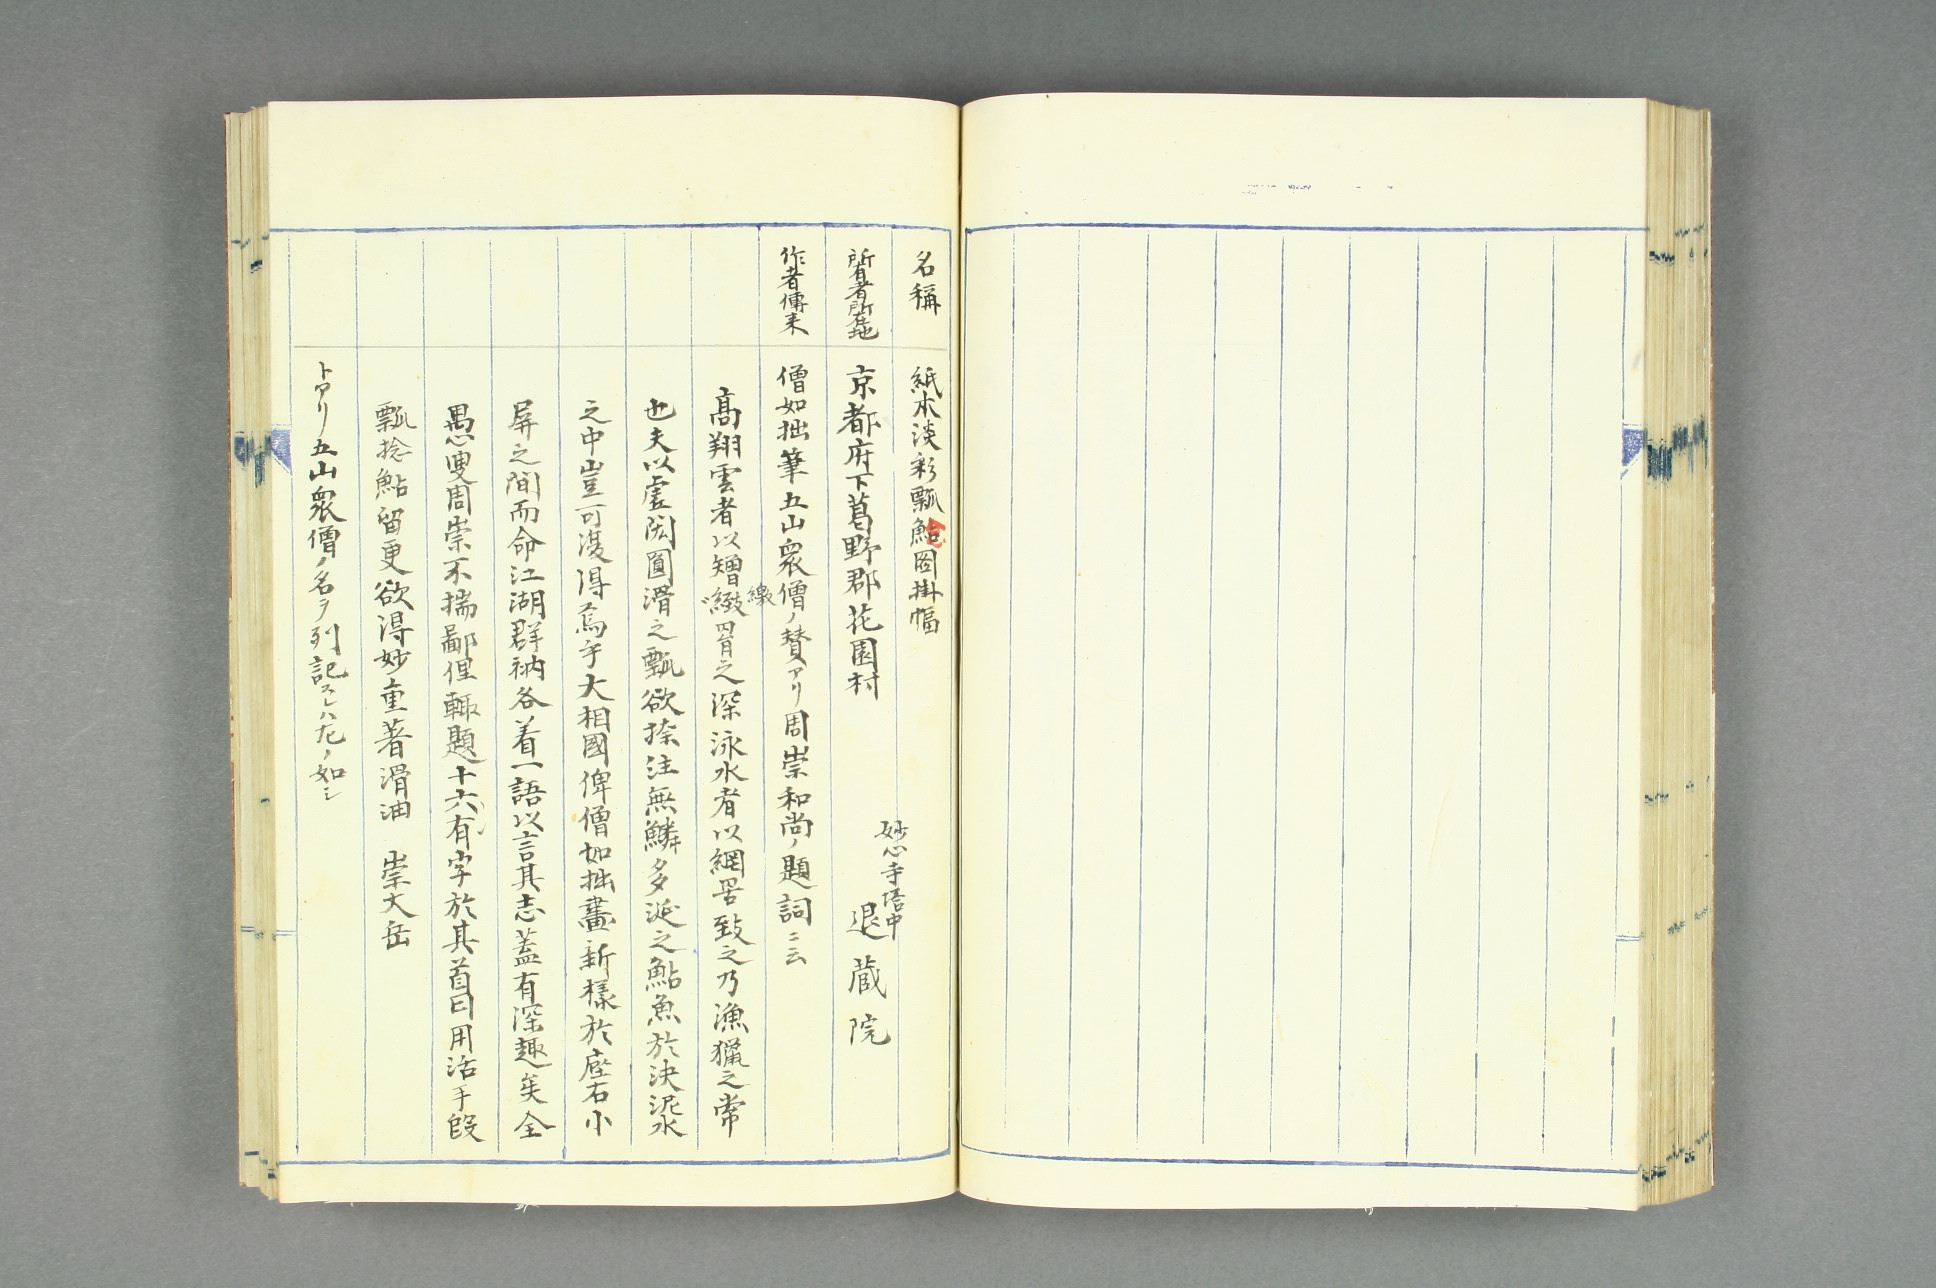 名稱 紙本淡彩瓢鮎図掛幅
所有者所在地 京都府下葛野郡花園村 妙心寺塔中 退蔵院
作者傳来 僧如拙筆五山衆僧ノ賛アリ周崇和尚ノ題詞ニ云
高翔雲者以矰緻繳罥之深泳水者以網罟致之乃漁獵之常
也夫以虚閎圓滑之瓢欲捺注無鱗多涎之鮎魚於決泥水
之中豈可復得焉乎大相國俾僧如拙畫新樣於座右小
屏之間而命江湖群衲各着一語以言其志蓋有深趣矣全
愚叟周崇不揣鄙俚輙題十六有字於其首曰用活手段
瓢捻鮎留更欲得妙重著滑油 崇大岳
トアリ五山衆僧ノ名ヲ列記スレハ左ノ如シ